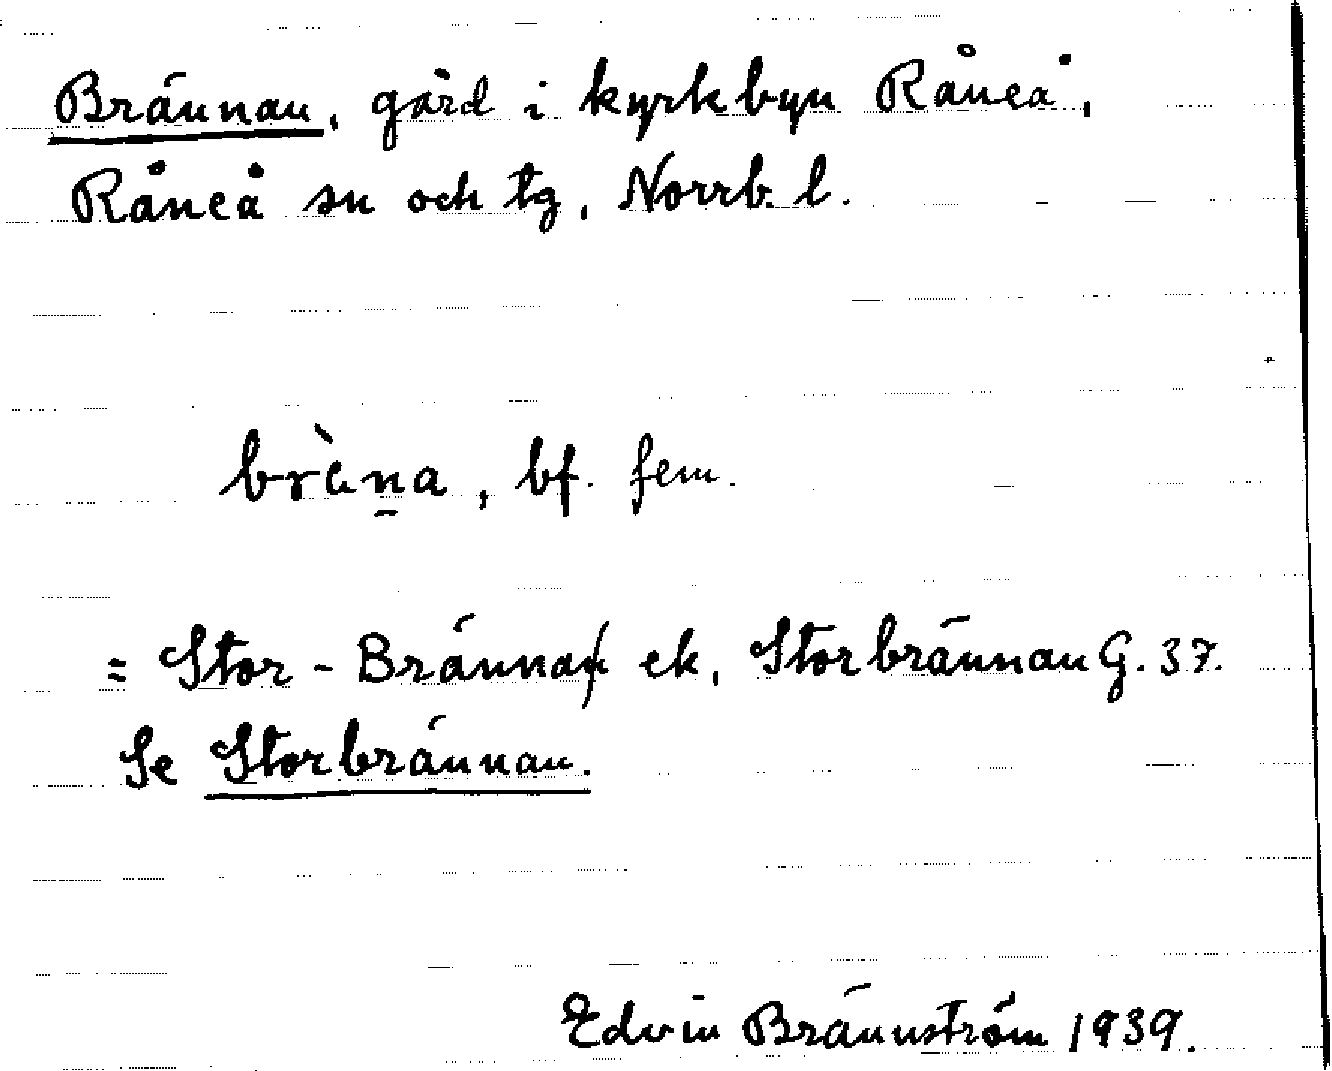 Brännan, gård i kyrkbyn Råneå,
Råneå sn och tg, Norrb. l.
bràn̲a, bf. fem.
= Stor-Brännan ek, Storbrännan G. 37.
Se Storbrännan.
Edvin Brännström 1939.